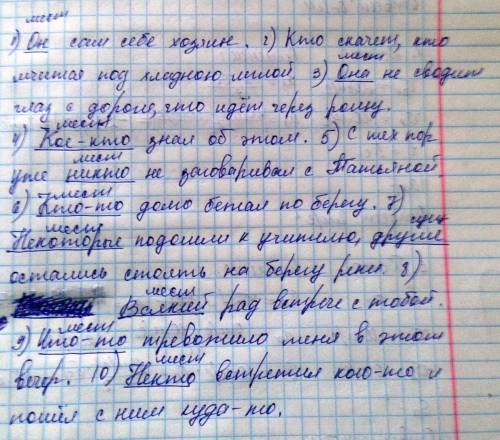 мест
1) Он сам себе хозяин. 2) Кто скачет, кто
мест
мчится под хладною мглой. 3) Она не сводит
глаз с дороги, что идёт через рощу.
мест
4) Кое-кто знал об этом. 5) С тех пор
мест
уже никто не заговаривал с Татьяной.
мест
6) Кто-то долго бегал по берегу. 7)
мест сущ
Некоторые подошли к учителю, другие
остались стоять на берегу реки. 8)
мест
Всякий рад встрече с тобой.
мест
9) Что-то тревожило меня в этот
мест
вечер. 10) Некто встретил кого-то и
пошёл с ним куда-то.